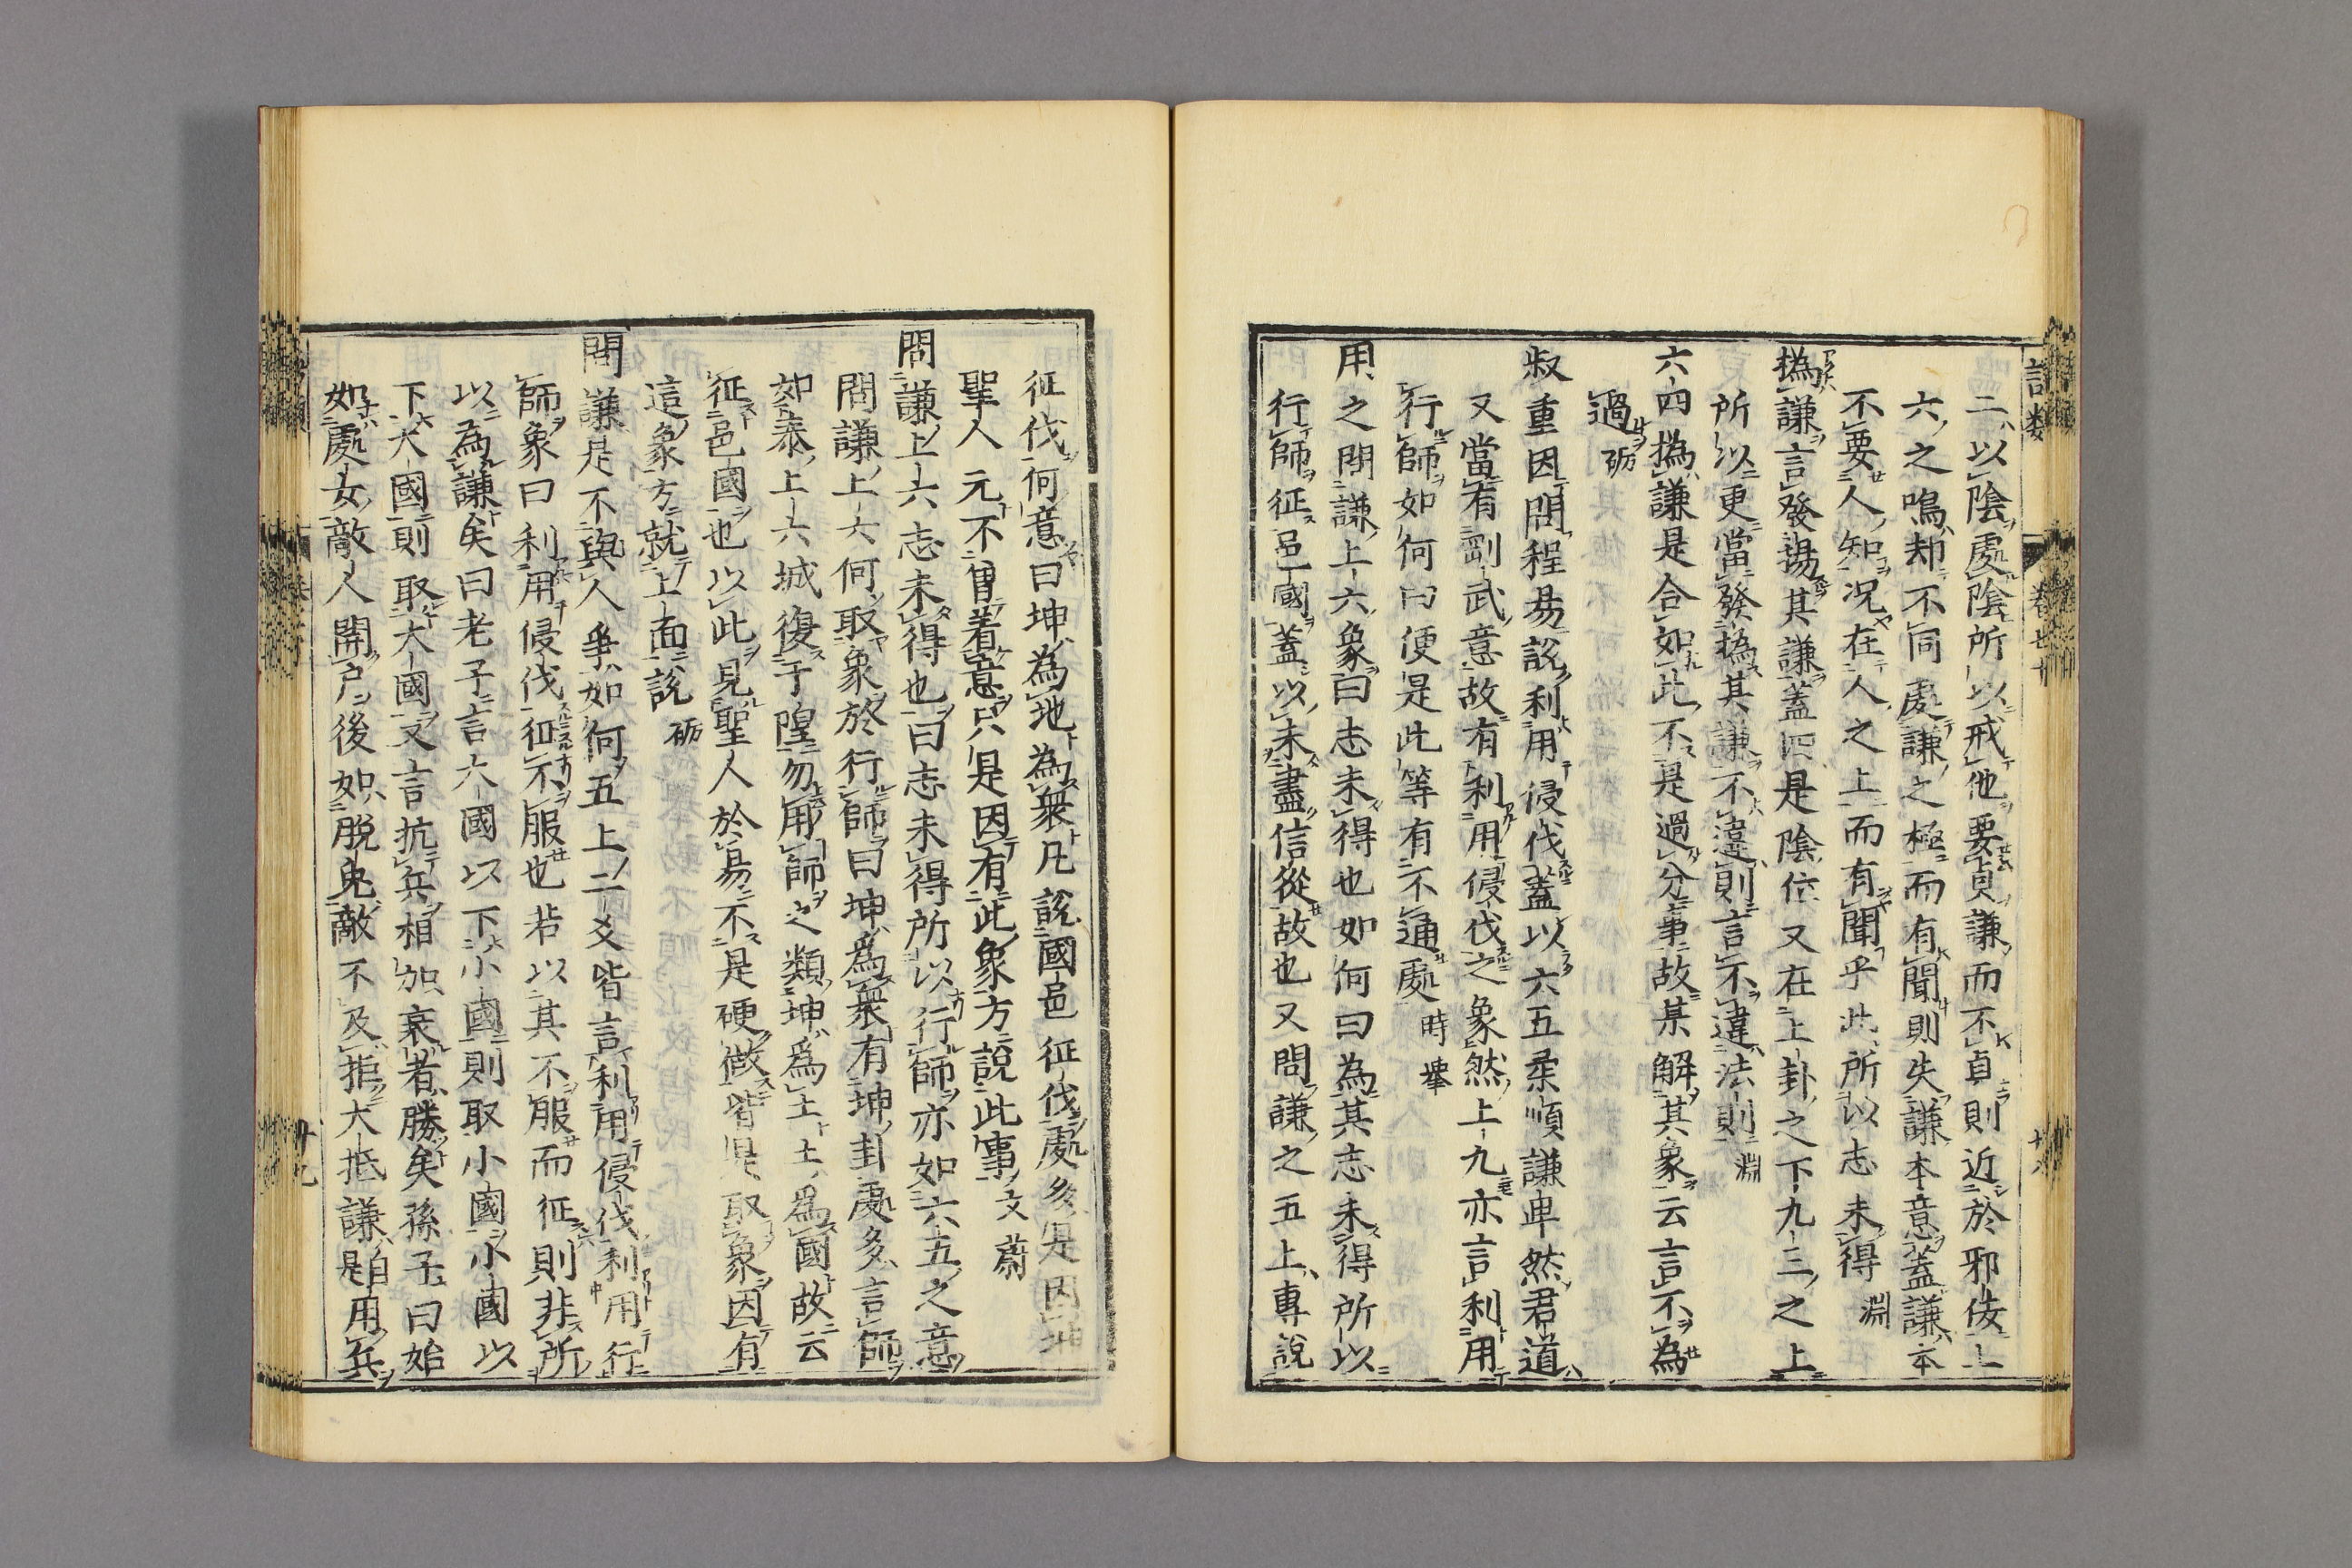 語類
二以陰處陰所以戒他要貞謙而不貞則近於邪佞上
六之鳴却不同處謙之極而有聞則失謙本意蓋謙本
不要人知況在人之上而有聞乎此所以志未得 淵
撝謙言發揚其謙蓋四是陰位又在上卦之下九三之上
所以更當發撝其謙不違則言不違法則 淵
六四撝謙是合如此不是過分事故某解其象云言不為
過 砺
叔重因問程易說利用侵伐蓋以六五柔順謙卑然君道
又當有剛武意故有利用侵伐之象然上九亦言利用
行師如何曰便是此等有不通處 時擧
用之問謙上六象曰志未得也如何曰為其志未得所以
行師征邑國蓋以未盡信從故也又問謙之五上專說
征伐何意曰坤為地為衆凡說國邑征伐處多是因坤
聖人元不曾着意只是因有此象方說此事 文蔚
問謙上六志未得也曰志未得所以行師亦如六五之意
問謙上六何取象於行師曰坤為衆有坤卦處多言師
如泰上六城復于隍勿用師之類坤為土土為國故云
征邑國也以此見聖人於易不是硬做皆是取象因有
這象方就上面說 砺
問謙是不與人爭如何五上二爻皆言利用侵伐利用行
師象曰利用侵伐征不服也若以其不服而征則非所
以為謙矣曰老子言六國以下小國則取小國小國以
下大國則取大國又言抗兵相加哀者勝矣孫子曰始
如處女敵人開户後如脫兔敵不及拒大抵謙自是用兵
廿九